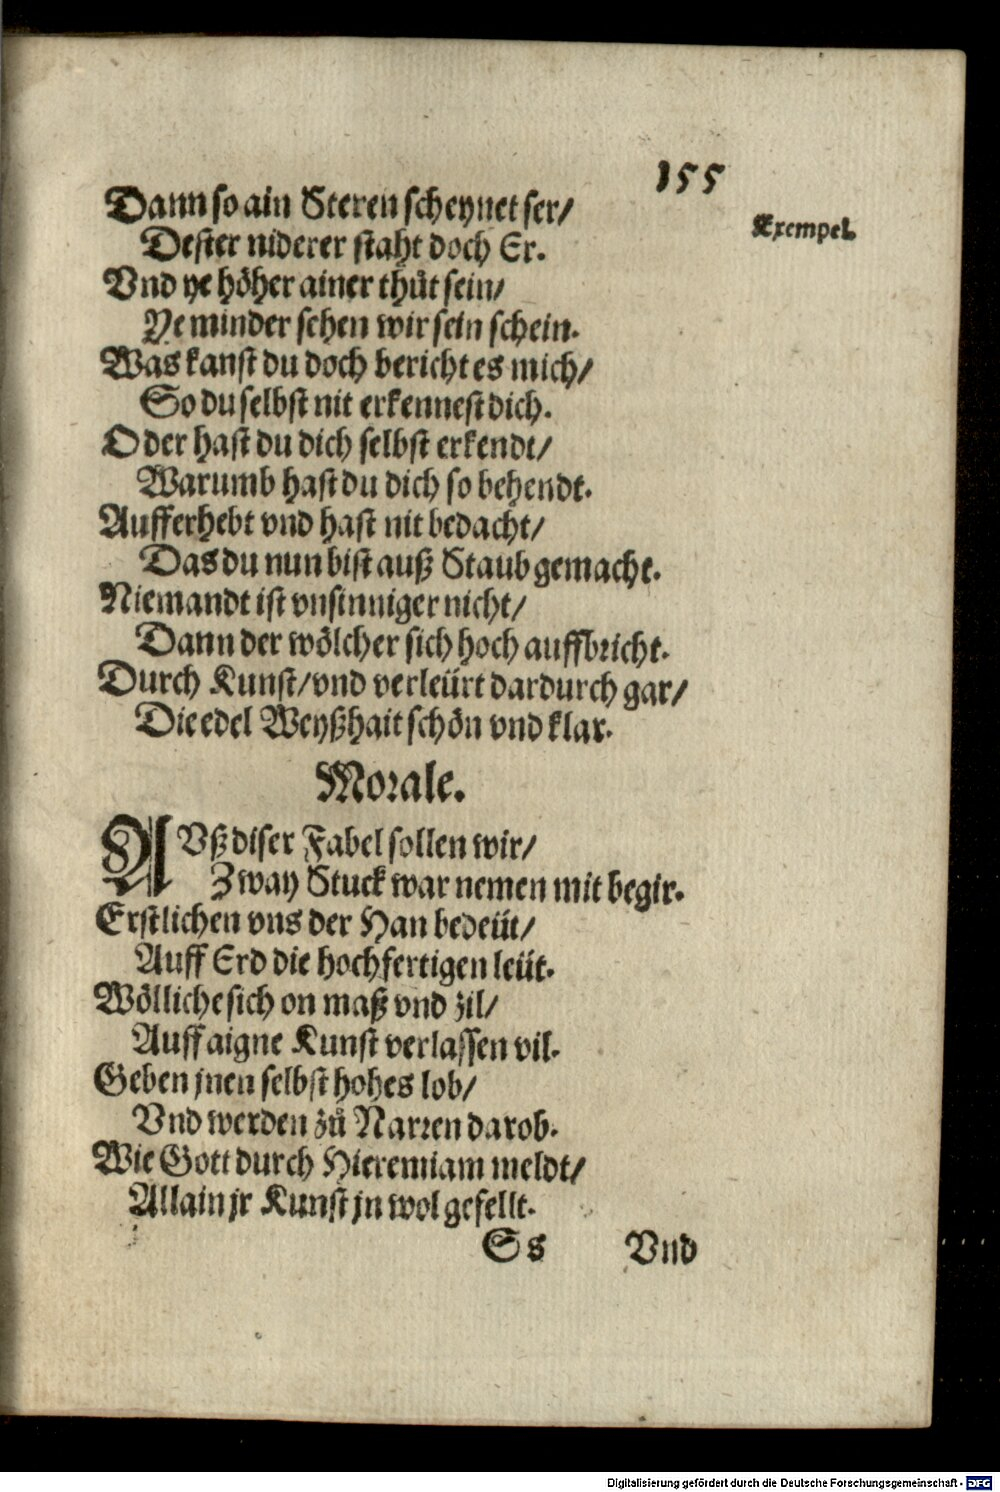 155
Dann so ain Steren scheynet ser/
Exempel.
Dester niderer staht doch Er.
Vnd ye höher ainer thůt sein/
Ye minder sehen wir sein schein.
Was kanst du doch bericht es mich/
So du selbst nit erkennest dich.
Oder hast du dich selbst erkendt/
Warumb hast du dich so behendt.
Aufferhebt vnd hast nit bedacht/
Das du nun bist auß Staub gemacht.
Niemandt ist vnsinniger nicht/
Dann der wölcher sich hoch auffbricht.
Durch Kunst/vnd verleürt dardurch gar/
Die edel Weyßhait schön vnd klar.
Morale.
AVß diser Fabel sollen wir/
Zway Stuck war nemen mit begir.
Erstlichen vns der Han bedeüt/
Auff Erd die hochfertigen leüt.
Wölliche sich on maß vnd zil/
Auff aigne Kunst verlassen vil.
Geben jnen selbst hohes lob/
Vnd werden zů Narren darob.
Wie Gott durch Hieremiam meldt/
Allain jr Kunst jn wol gefellt.
Ss Vnd
Digitalisierung gefördert durch die Deutsche Forschungsgemeinschaft - DFG